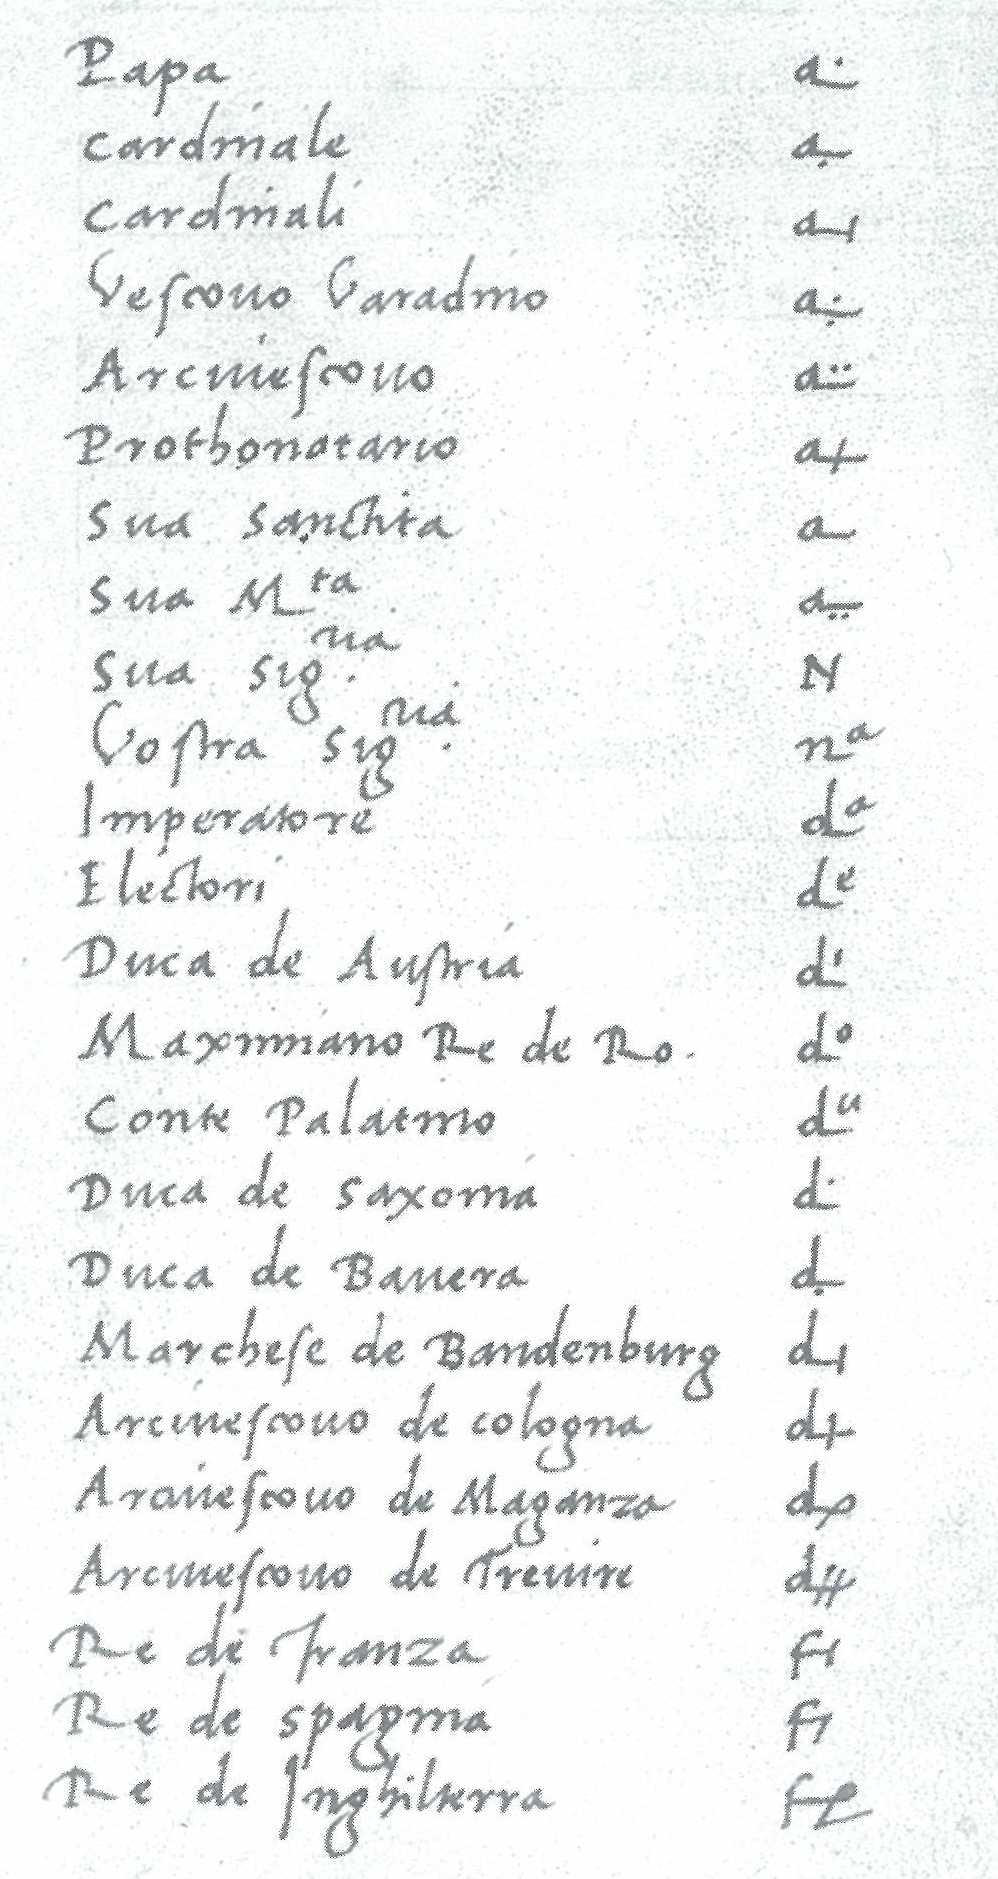 Papa a·
Cardinale a.
Cardinali a
Vescouo Varadino a
Arciuescouo a··
Prothonotario a+
Sua Sanctita a
Sua M^ta a
Sua sig^ria. N
Vostra sig^ria. n^a
Imperatore d^a
Electori d^e
Duca de Austria d^i
Maximiano Re de Ro. d^o
Conte Palatino d^u
Duca de saxonia d·
Duca de Bauera d.
Marchese de Bandenburg d
Arciuescouo de cologna d+
Arciuescouo de Maganza d
Arciuescouo de Treuire d
Re de franza f
Re de spagnia f
Re de Inghilterra f